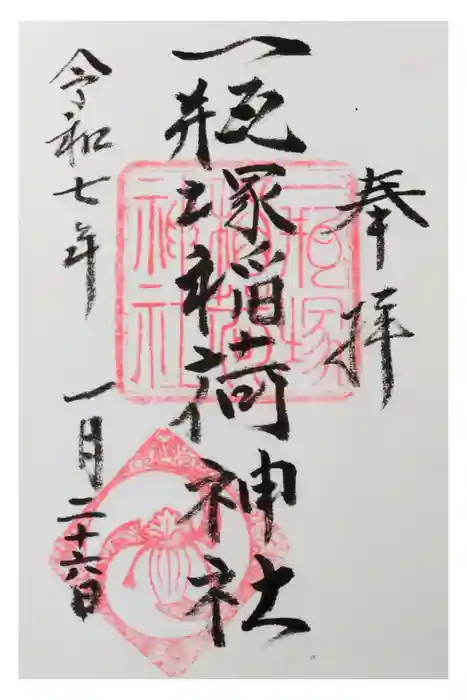 奉拝
一瓶塚稲荷神社
一瓶塚
稲荷
神社
令和七年
一月二十六日